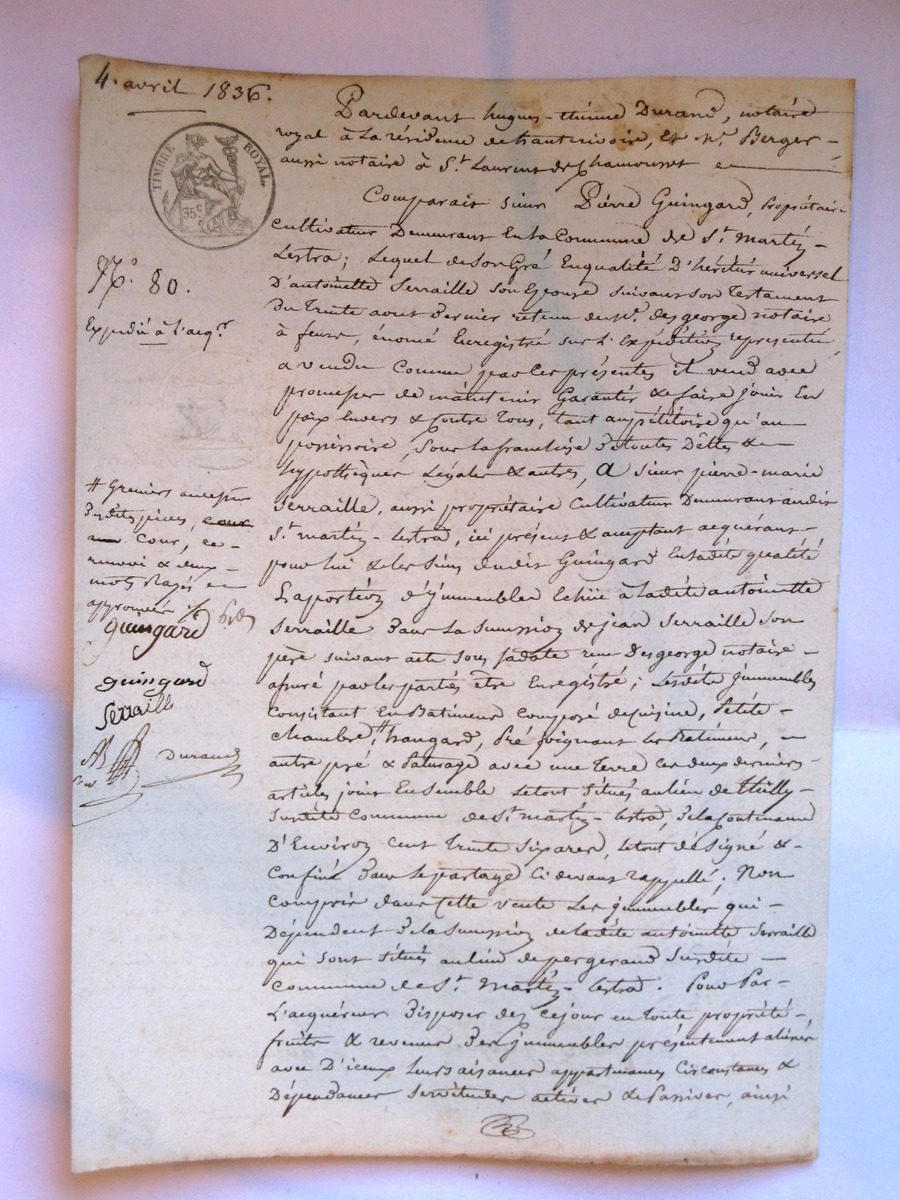 4. avril 1836.
TIMBRE ROYAL.
35 c
N.º 80.
Expédié à l'acq.r
# Greniers au dessus
desdites pièces,
Cour, ce
renvoi & deux
mots rayés
approuvés
guingard
guingard
Serraille
Durand
Pardevant hugues-étienne Durand, notaire
royal à La résidence de hauterivoire, Et M.e Berger
aussi notaire à S.t Laurent de Chamousset
Comparait sieur Pierre Guingard, Propriétaire
Cultivateur Demeurant En la Commune de S.t Martin-
Lestra; Lequel de son Gré En qualité D'héritier universel
D'antoinette Serraille son Epouse suivant son Testament
du Trente aout Dernier retenu de M.e desgeorge notaire
à feurs, énoncé Enregistré sur L'Expédition représentée
a vendu Comme par les présentes il vend avec
promesse de maintenir Garantir & faire jouir En
paix Envers & Contre Tous, tant au pétitoire qu'au
possessoire, Sous la franchise de toutes Dettes &
hypothèques Légales & autres, A Sieur pierre-marie
Serraille, aussi propriétaire Cultivateur Demeurant audit
S.t martin-Lestra, ici présent & acceptant acquérant
pour lui & les siens dudit Guingard En sadite qualité
La portion d'Jmmeubles Echue à Ladite antoinette
Serraille Dans La succession de jean Serraille son
père suivant acte sous sa date reçu Desgeorge notaire
assuré par les parties être Enregistré; Lesdits jmmeubles
Consistant En Batiment Composé de cuisine, Petite
Chambre,# hangard, Pré joignant les Batiments,
autre pré & Paturage avec une Terre Ces deux derniers
articles joints Ensemble Le tout situés au lieu de
Susdite Commune de S.t martin-Lestra, de la Contenance
D'Environ Cent Trente Six ares, Le tout désigné &
Confiné Dans le partage Ci devant rappellé; Non
Compris dans Cette vente Les jmmeubles qui
Dépendent de la succession de ladite antoinette Serraille
qui sont situés au lieu de pergerand Susdite
Commune de S.t Martin-Lestra. Pour Par
L'acquéreur Disposer dès ce jour en toute propriété
fruits & revenus Des jmmeubles présentement aliénés
avec D'iceux Leurs aisances appartenances Circonstances &
Dépendances Servitudes actives & Passives, ainsi